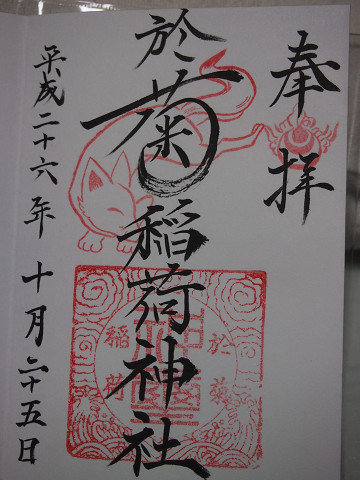 奉拝
於菊稲荷神社
平成二十六年十月二十五日
於菊
稲荷